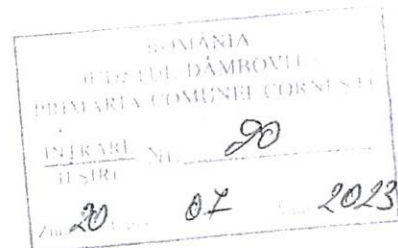 ROMÂNIA
JUDEȚUL DÂMBOVIȚA
PRIMĂRIA COMUNEI CORNEȘTI
INTRARE Nr. 90
IEȘIRE
Ziua 20 Luna 07 Anul 2023